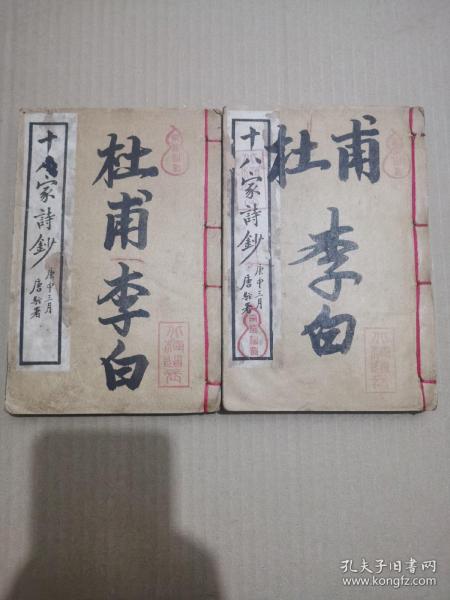 十八家詩鈔
庚申三月
唐駝署
杜甫李白
十八家詩鈔
庚申三月
唐駝署
杜甫
李白
孔夫子旧书网
www.kongfz.com